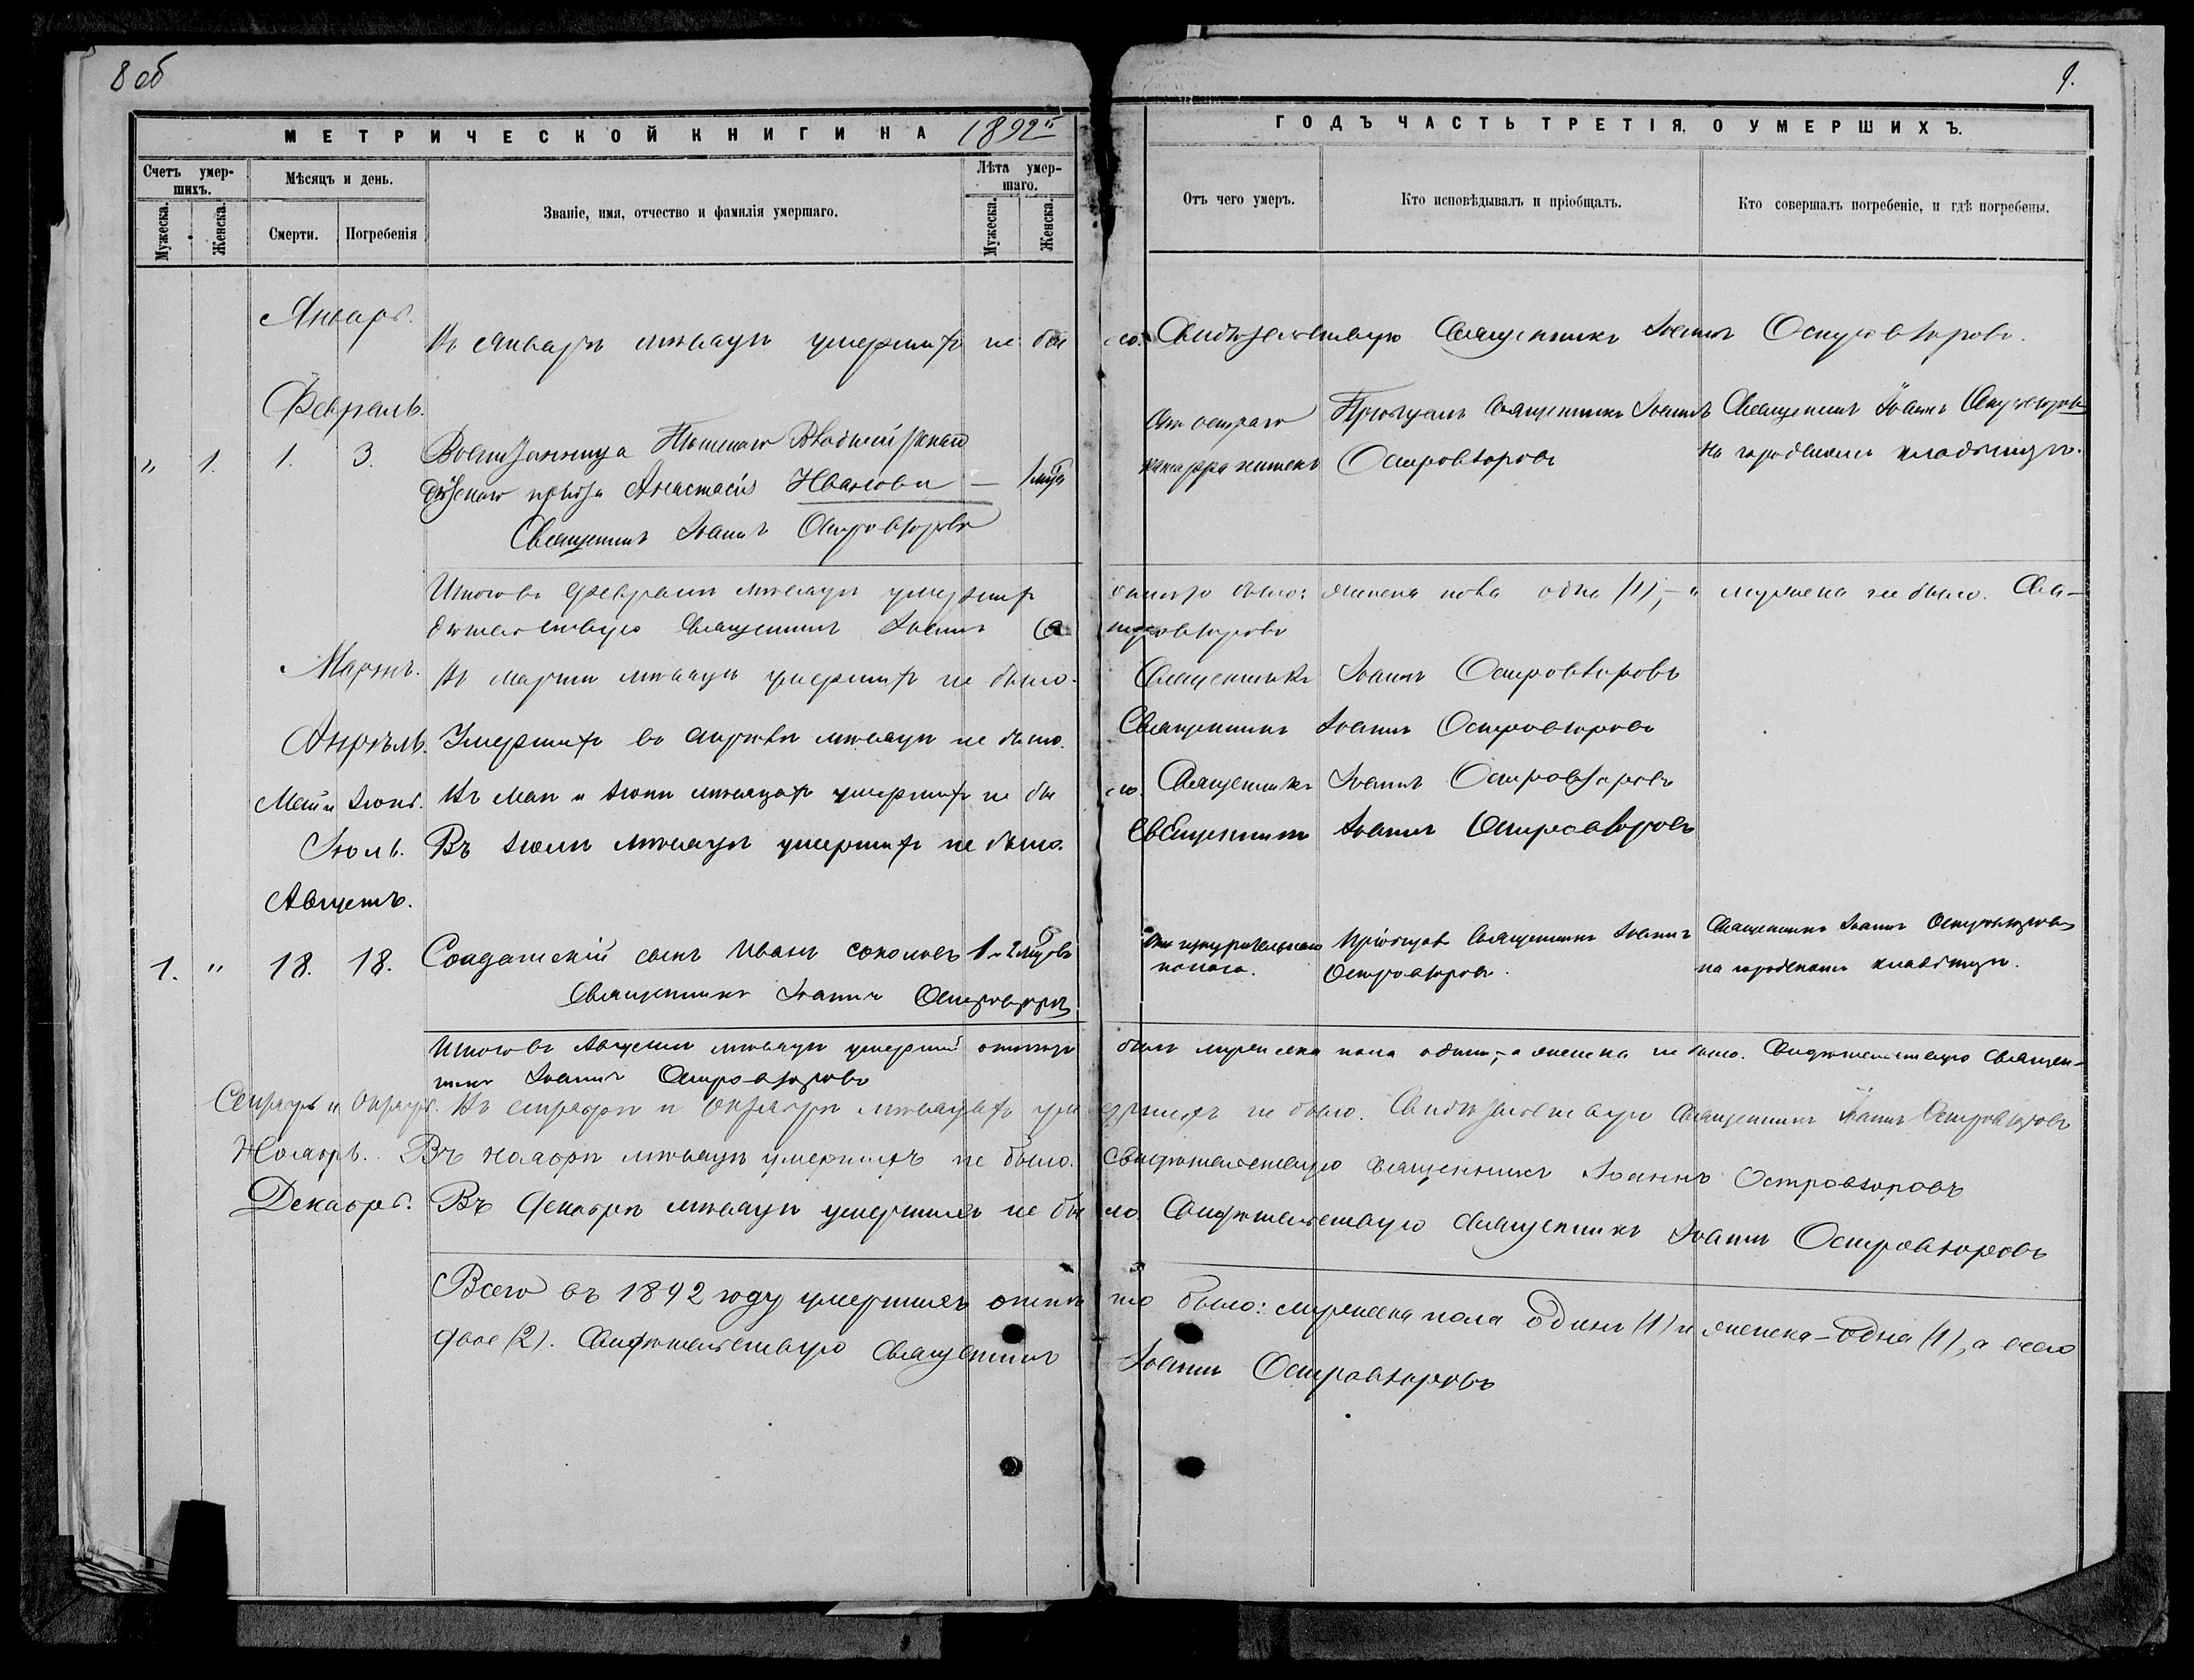 8 об
9.
МЕТРИЧЕСКОЙ КНИГИ НА 1892й
ГОДЪ ЧАСТЬ ТРЕТІЯ, О УМЕРШИХЪ.
Счетъ умер-
шихъ.
Мѣсяцъ и день.
Званіе, имя, отчество и фамилія умершаго.
Лѣта умер-
шаго.
Отъ чего умеръ.
Кто исповѣдывалъ и пріобщалъ.
Кто совершалъ погребеніе, и гдѣ погребены.
Мужеска.
Женска.
Смерти.
Погребенія
Мужеска.
Женска.
Январь.
Въ Январѣ мѣсяцѣ умершихъ не было. Свидѣтельствую Священникъ Іоаннъ Островзоровъ.
Февраль.
" 1. 1. 3. Воспитанница Тюменскаго
Анастасія Иванова — 1 мѣс.
Священникъ Іоаннъ Островзоровъ
Отъ остраго
кишекъ
Пріобщалъ Священникъ Іоаннъ
Островзоровъ
Священникъ Іоаннъ Островзоровъ
на городскомъ кладбищѣ.
Итого въ Февралѣ мѣсяцѣ умершихъ было: женска пола одна (1), а мужеска не было. Сви-
дѣтельствую Священникъ Іоаннъ Островзоровъ
Мартъ. Въ Мартѣ мѣсяцѣ умершихъ не было. Священникъ Іоаннъ Островзоровъ
Апрѣль. Умершихъ въ Апрѣлѣ мѣсяцѣ не было. Священникъ Іоаннъ Островзоровъ
Май и Іюнь. Въ Маѣ и Іюнѣ мѣсяцахъ умершихъ не было. Священникъ Іоаннъ Островзоровъ
Іюль. Въ Іюлѣ мѣсяцѣ умершихъ не было. Священникъ Іоаннъ Островзоровъ
Августъ.
1. " 18. 18. Солдатскій сынъ Иванъ Соколовъ 1 и 2 мѣсяцовъ
Священникъ Іоаннъ Островзоровъ
Отъ изнурительнаго
поноса.
Пріобщалъ Священникъ Іоаннъ
Островзоровъ.
Священникъ Іоаннъ Островзоровъ
на городскомъ кладбищѣ.
Итого въ Августѣ мѣсяцѣ умершій былъ мужеска пола одинъ, а женска не было. Свидѣтельствую Священ-
никъ Іоаннъ Островзоровъ
Сентябрь и Октябрь. Въ Сентябрѣ и Октябрѣ мѣсяцахъ умершихъ не было. Свидѣтельствую Священникъ Іоаннъ Островзоровъ
Ноябрь. Въ Ноябрѣ мѣсяцѣ умершихъ не было. Свидѣтельствую Священникъ Іоаннъ Островзоровъ
Декабрь. Въ Декабрѣ мѣсяцѣ умершихъ не было. Свидѣтельствую Священникъ Іоаннъ Островзоровъ
Всего въ 1892 году умершихъ было: мужеска пола одинъ (1) и женска – одна (1), а всего
двое (2). Свидѣтельствую Священникъ Іоаннъ Островзоровъ